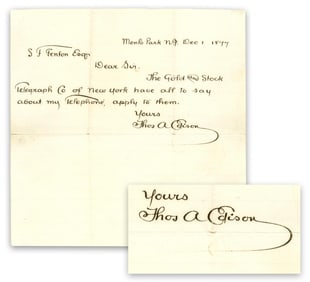 Menlo Park N.J. Dec 1 1877
S F Fenton Esq
Dear Sir.
The Gold and Stock
Telegraph Co of New York have all to say
about my Telephone, apply to them.
Yours
Thos A Edison
Yours
Thos A Edison